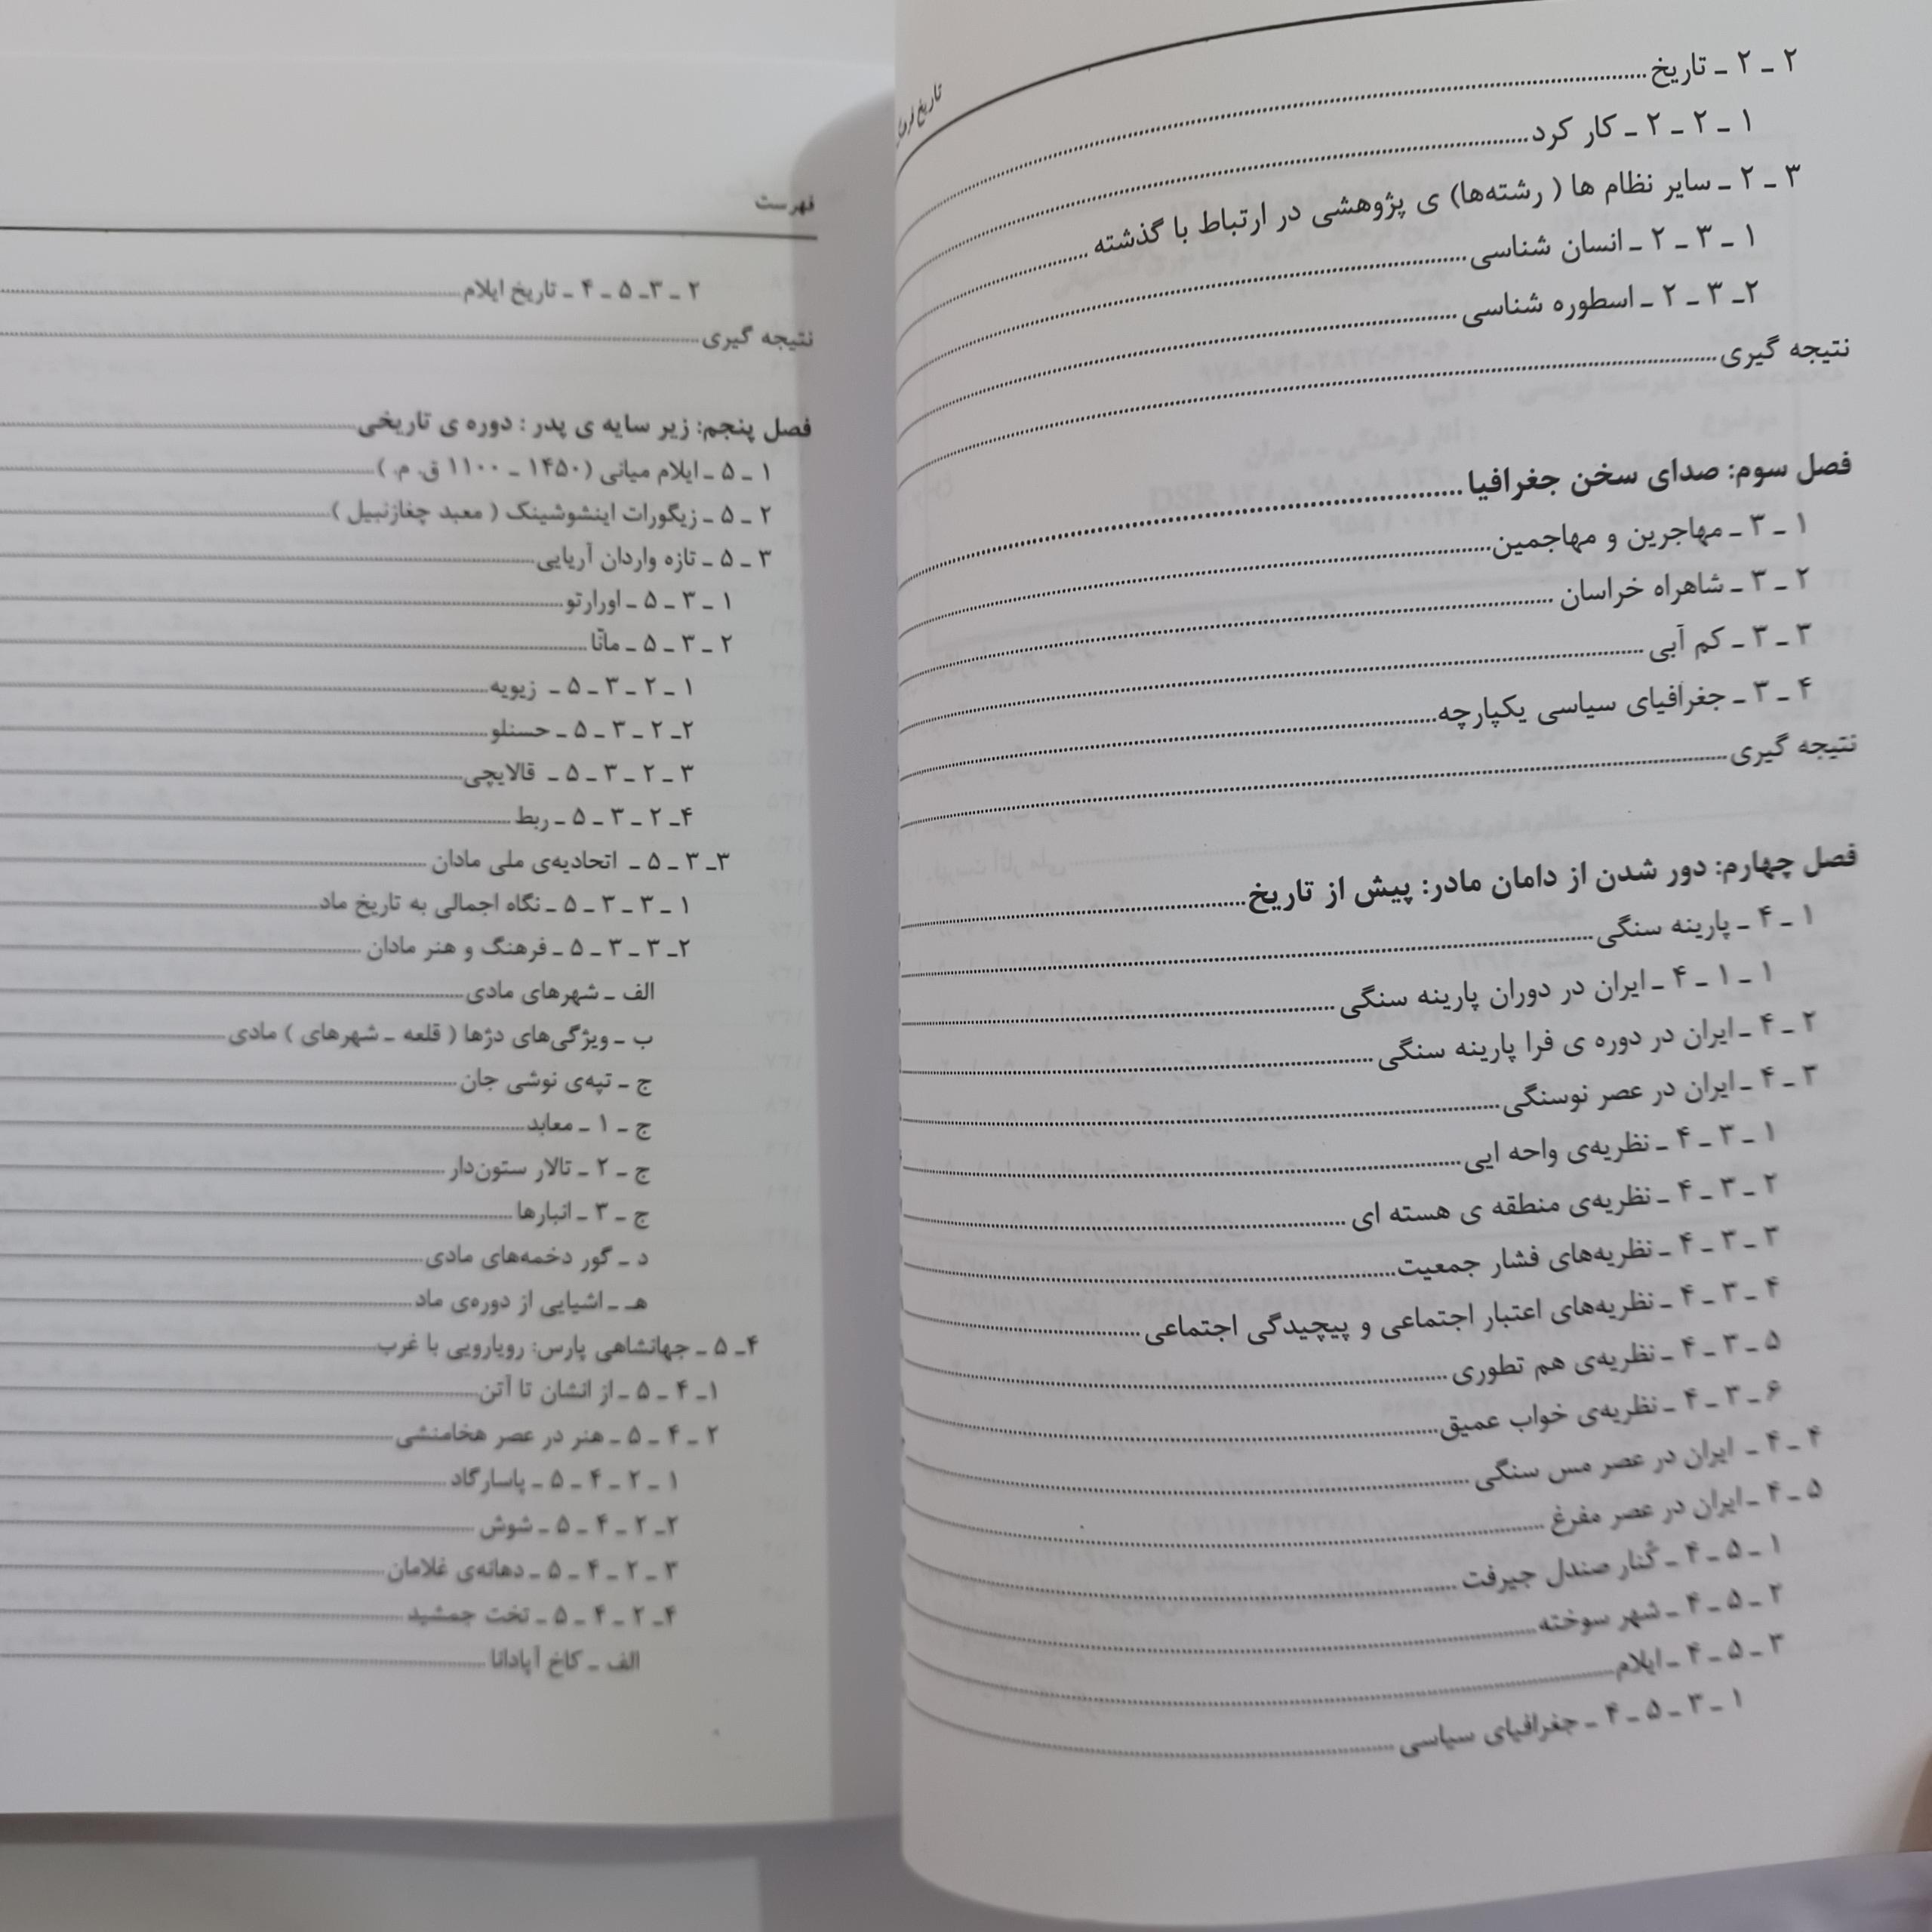 تاریخ فرهنگ
۲ ـ ۲ ـ تاریخ
۱ ـ ۲ ـ ۲ ـ کار کرد
۳ ـ ۲ ـ سایر نظام ها ( رشته‌ها) ی پژوهشی در ارتباط با گذشته
۱ ـ ۳ ـ ۲ ـ انسان شناسی
۲ـ ۳ ـ ۲ ـ اسطوره شناسی
نتیجه گیری
فصل سوم: صدای سخن جغرافیا
۱ ـ ۳ ـ مهاجرین و مهاجمین
۲ ـ ۳ ـ شاهراه خراسان
۳ ـ ۳ ـ کم آبی
۴ ـ ۳ ـ جغرافیای سیاسی یکپارچه
نتیجه گیری
فصل چهارم: دور شدن از دامان مادر: پیش از تاریخ
۱ ـ ۴ ـ پارینه سنگی
۱ ـ ۱ ـ ۴ ـ ایران در دوران پارینه سنگی
۲ ـ ۴ ـ ایران در دوره ی فرا پارینه سنگی
۳ ـ ۴ ـ ایران در عصر نوسنگی
۱ ـ ۳ ـ ۴ ـ نظریه‌ی واحه ایی
۲ ـ ۳ ـ ۴ ـ نظریه‌ی منطقه ی هسته ای
۳ ـ ۳ ـ ۴ ـ نظریه‌های فشار جمعیت
۴ ـ ۳ ـ ۴ ـ نظریه‌های اعتبار اجتماعی و پیچیدگی اجتماعی
۵ ـ ۳ ـ ۴ ـ نظریه‌ی هم تطوری
۶ ـ ۳ ـ ۴ ـ نظریه‌ی خواب عمیق
۴ ـ ۴ ـ ایران در عصر مس سنگی
۵ ـ ۴ ـ ایران در عصر مفرغ
۱ ـ ۵ ـ ۴ ـ کُنار صندل جیرفت
۲ ـ ۵ ـ ۴ ـ شهر سوخته
۳ ـ ۵ ـ ۴ ـ ایلام
۱ ـ ۳ ـ ۵ ـ ۴ ـ جغرافیای سیاسی
فهرست
۲ ـ ۳ـ ۵ ـ ۴ ـ تاریخ ایلام
نتیجه گیری
فصل پنجم: زیر سایه ی پدر : دوره ی تاریخی
۱ ـ ۵ ـ ایلام میانی (۱۴۵۰ ـ ۱۱۰۰ ق. م. )
۲ ـ ۵ ـ زیگورات اینشوشینک ( معبد چغازنبیل )
۳ ـ ۵ ـ تازه واردان آریایی
۱ ـ ۳ ـ ۵ ـ اورارتو
۲ ـ ۳ ـ ۵ ـ مانّا
۱ ـ ۲ ـ ۳ ـ ۵ ـ زیویه
۲ـ ۲ ـ ۳ ـ ۵ ـ حسنلو
۳ ـ ۲ ـ ۳ ـ ۵ ـ قالایچی
۴ـ ۲ ـ ۳ ـ ۵ ـ ربط
۳ـ ۳ ـ ۵ ـ اتحادیه‌ی ملی مادان
۱ ـ ۳ ـ ۳ ـ ۵ ـ نگاه اجمالی به تاریخ ماد
۲ـ ۳ ـ ۳ ـ ۵ ـ فرهنگ و هنر مادان
الف ـ شهرهای مادی
ب ـ ویژگی‌های دژها ( قلعه ـ شهرهای ) مادی
ج ـ تپه‌ی نوشی جان
ج ـ ۱ ـ معابد
ج ـ ۲ ـ تالار ستون‌دار
ج ـ ۳ ـ انبارها
د ـ گور دخمه‌های مادی
هـ ـ اشیایی از دوره‌ی ماد
۴ـ ۵ ـ جهانشاهی پارس: رویارویی با غرب
۱ـ ۴ ـ ۵ ـ از انشان تا آتن
۲ ـ ۴ ـ ۵ ـ هنر در عصر هخامنشی
۱ ـ ۲ ـ ۴ ـ ۵ ـ پاسارگاد
۲ـ ۲ ـ ۴ ـ ۵ ـ شوش
۳ ـ ۲ ـ ۴ ـ ۵ ـ دهانه‌ی غلامان
۴ـ ۲ ـ ۴ ـ ۵ ـ تخت جمشید
الف ـ کاخ آپادانا